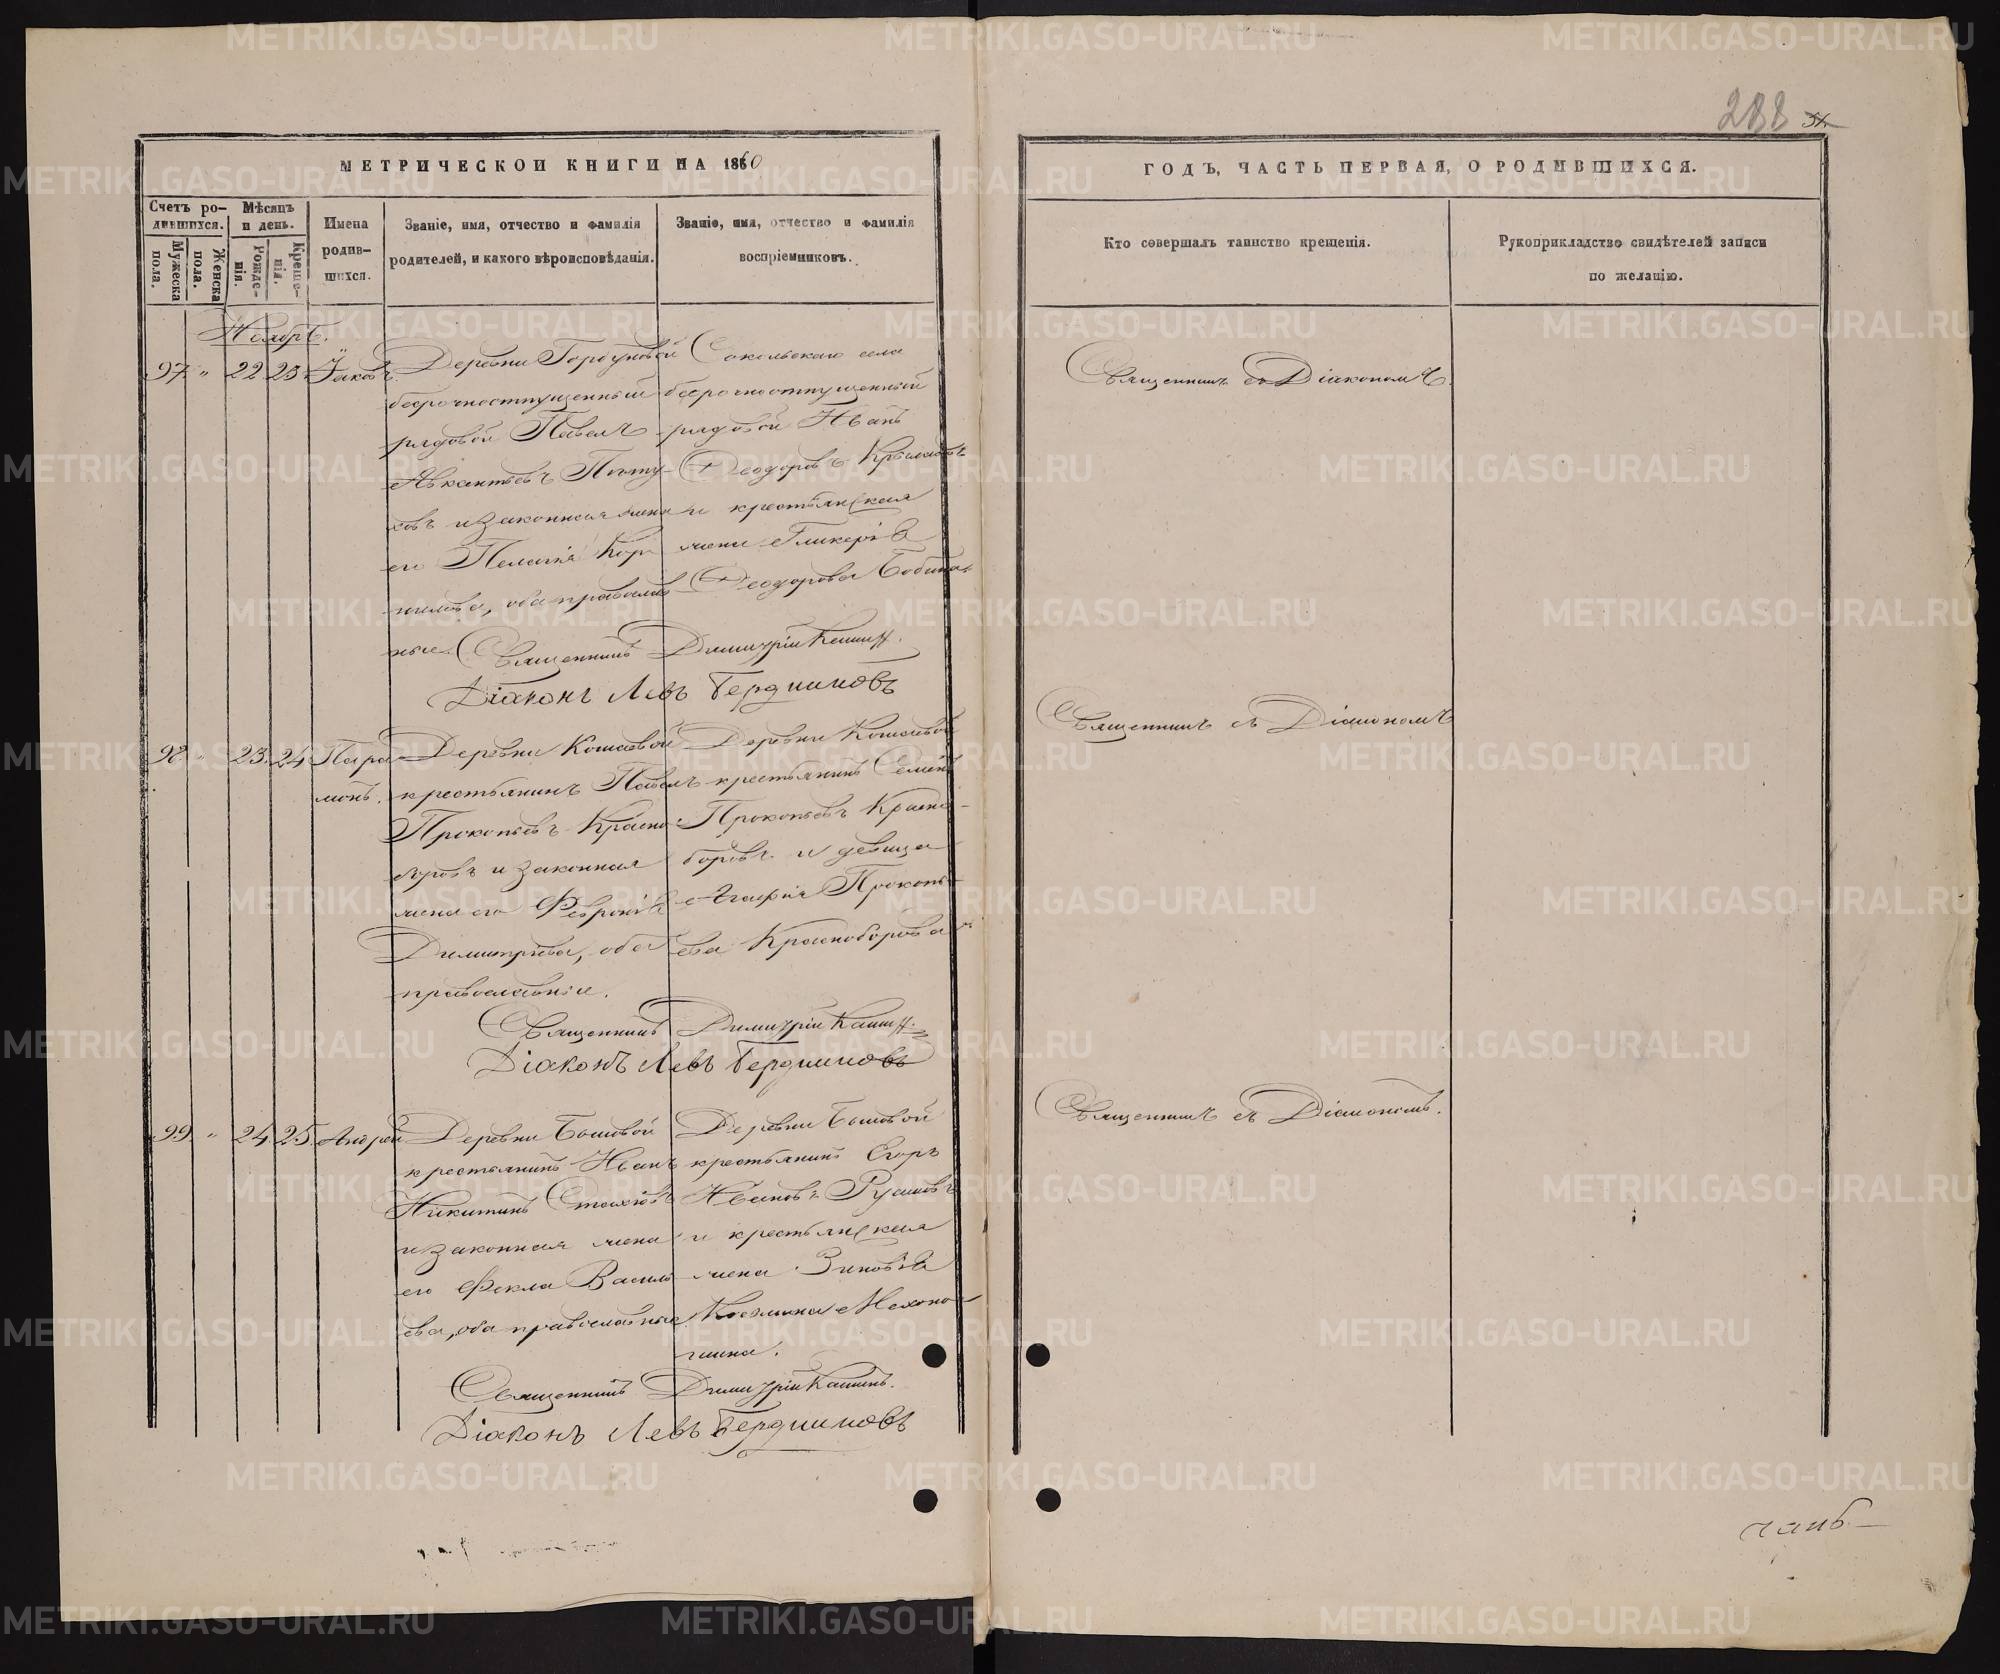 288
МЕТРИЧЕСКОЙ КНИГИ НА 1860
ГОДЪ, ЧАСТЬ ПЕРВАЯ, О РОДИВШИХСЯ.
Счетъ родившихся.
Мужеска пола.
Женска пола.
Мѣсяцъ и день.
Рожденія.
Крещенія.
Имена родившихся.
Званіе, имя, отчество и фамилія
родителей, и какого вѣроисповѣданія.
Званіе, имя, отчество и фамилія
воспріемниковъ.
Кто совершалъ таинство крещенія.
Рукоприкладство свидѣтелей записи
по желанію.
Ноябрь.
97 " 22 23 Іаковъ.
Деревни Горбуновой
безсрочноотпущенный
рядовой Павелъ
Пѣту-
ховъ и законная жена
его Пелагія Кор-
нилова, оба православ-
ные.
Сокольскаго села
безсрочноотпущенный
рядовой Иванъ
Ѳеодоровъ
и крестьянская
жена Гликерія
Ѳеодорова
Священникъ съ Діакономъ.
Священникъ Димитрій Кашинъ.
Діаконъ Левъ Бердниковъ
98 " 23 24 Пара-
монъ.
Деревни Кошаевой
крестьянинъ Павелъ
Прокопьевъ Красно-
боровъ и законная
жена его Февронія
Димитріева, оба
православные.
Деревни Кошаевой
крестьянинъ Семенъ
Прокопьевъ Красно-
боровъ и девица
Агафія Прокопь-
ева Красноборова
Священникъ съ Діакономъ
Священникъ Димитрій Кашинъ.
Діаконъ Левъ Бердниковъ
99 " 24 25 Андрей
Деревни
крестьянинъ Иванъ
Никитинъ Стаховъ
и законная жена
его Фекла Василь-
ева, оба православные
Деревни
крестьянинъ Егоръ
Ивановъ Русаковъ
и крестьянская
жена Зиновія
Козмина Мехоно-
шина.
Священникъ съ Діакономъ.
Священникъ Димитрій Кашинъ.
Діаконъ Левъ Бердниковъ
METRIKI.GASO-URAL.RU